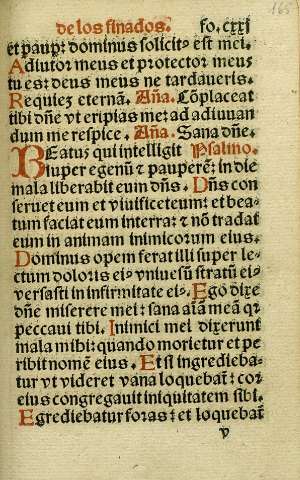 de los finados. fo. cxxj
165
et paup: dominus solicitꝰ est mei.
Adiutor meus et protector meus
tu es: deus meus ne tardaueris.
Requiez eternā. Aña. Cōplaceat
tibi dñe vt eripias me: ad adiuuan
dum me respice. Aña. Sana dñe.
BEatus qui intelligit Psalmo.
super egenū ⁊ pauperē: in die
mala liberabit eum dñs. Dñs con
seruet eum et viuificet eum: et bea-
tum faciat eum in terra: ⁊ nō tradat
eum in animam inimicorum eius.
Dominus opem ferat illi super le-
ctum doloris eiꝰ vniuesū stratū eiꝰ
versasti in infirmitate eiꝰ. Ego dixe
dñe miserere mei: sana aīam meā qꝛ
peccaui tibi. Inimici mei dixerunt
mala mihi: quando morietur et pe
ribit nomē eius. Et si ingredieba-
tur vt videret vana loquebat̄: cor
eius congregauit iniquitatem sibi.
Egrediebatur foras: et loquebat̄
v